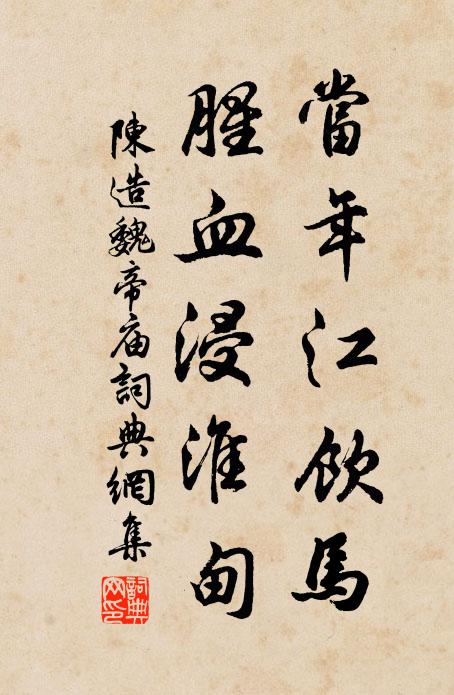 當年江飲馬
腥血浸淮甸
陳造魏帝庙詞典網集
詞典